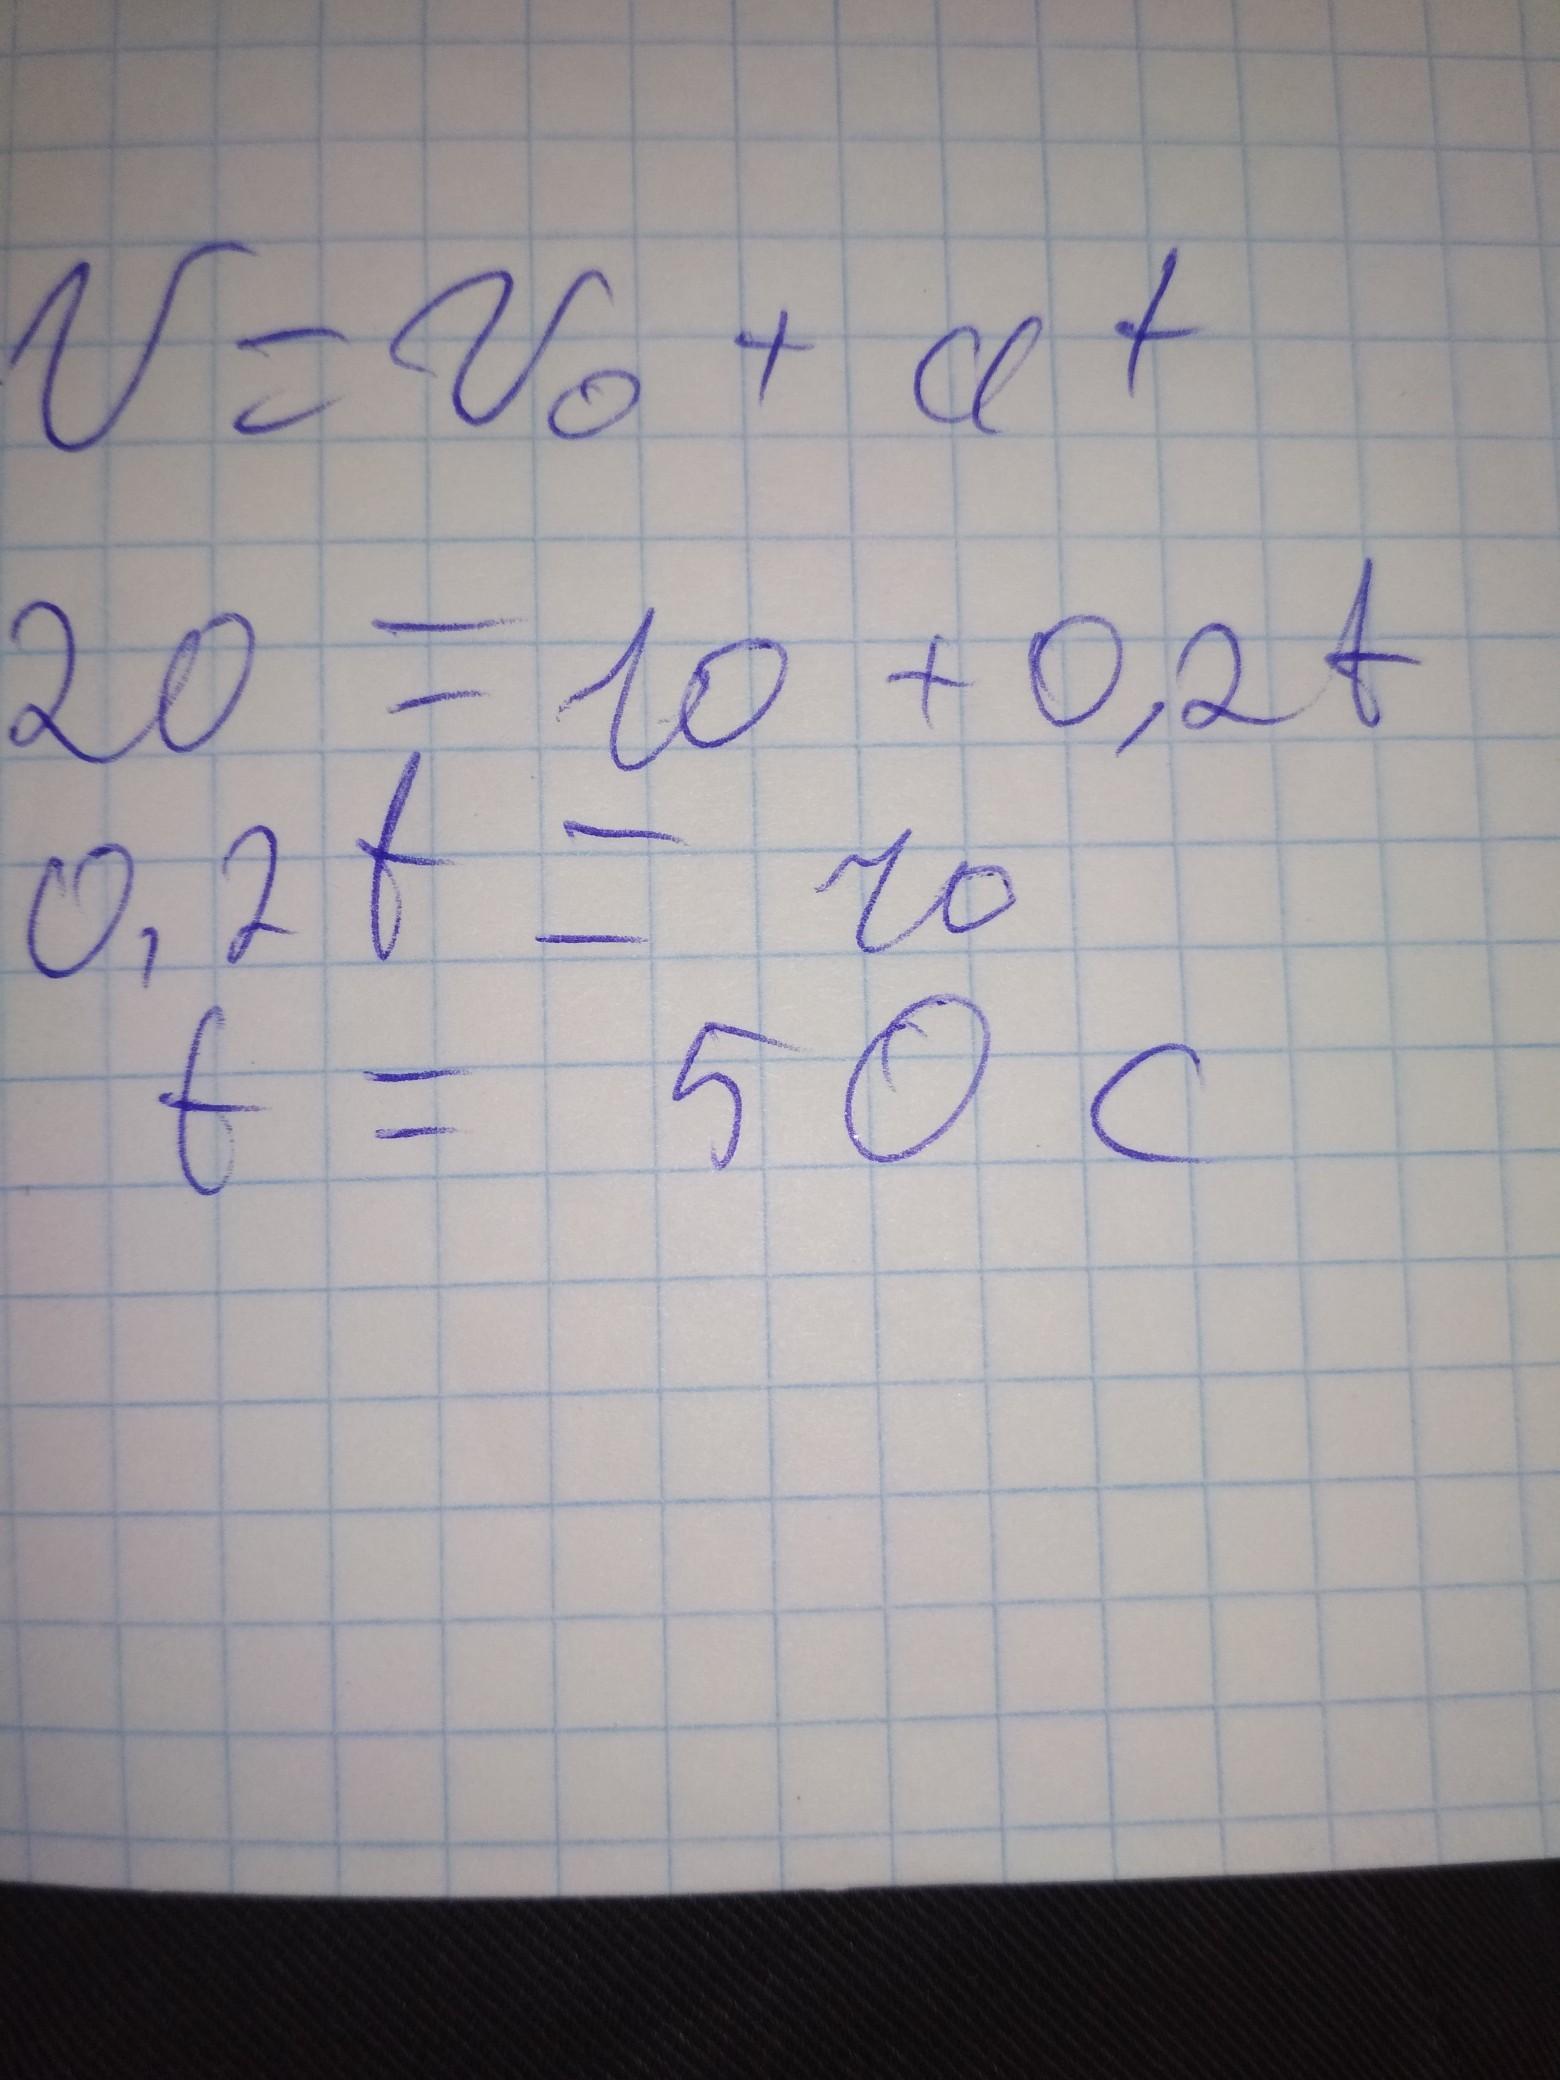 V = V₀ + at
20 = 10 + 0,2t
0,2t = 10
t = 50 с